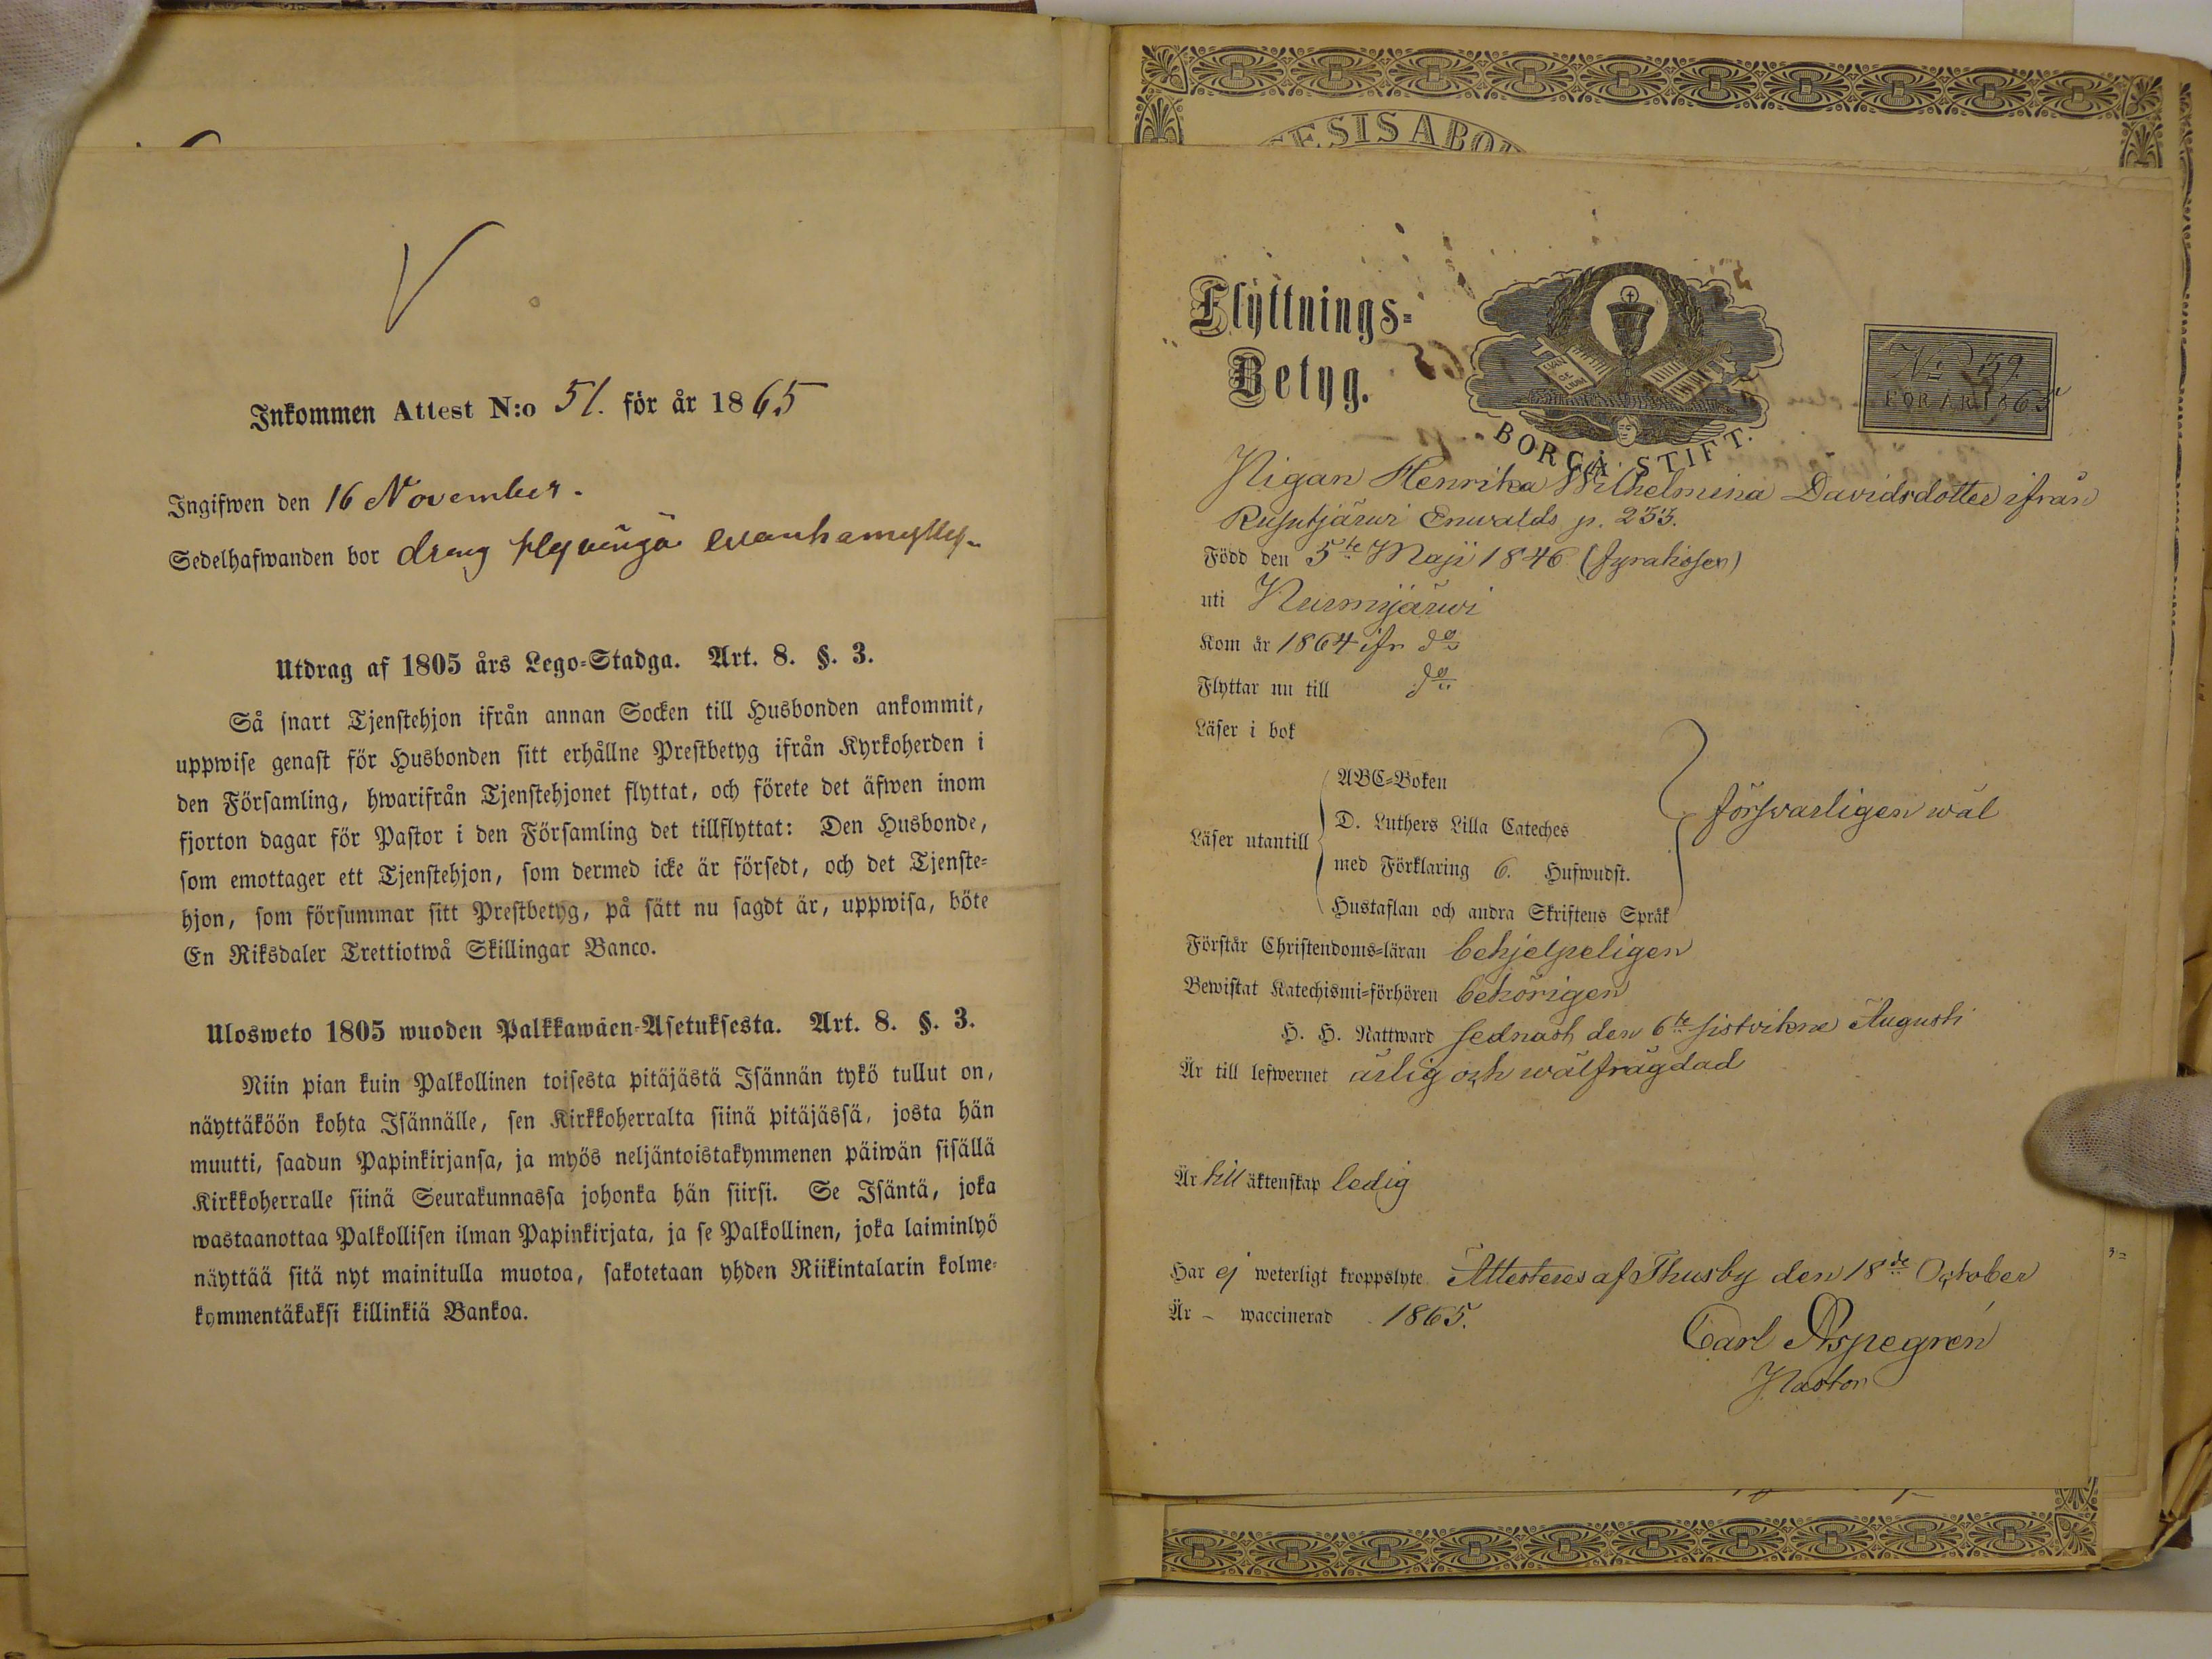 Inkommen Attest N:o 51. för år 1865
Ingifwen den 16 November.
Sedelhafwanden bor dreng Hyvinge wanhamylly
Utdrag af 1805 års Lego-Stadga. Art. 8. §. 3.
Så snart Tjenstehjon ifrån annan Socken till Husbonden ankommit,
uppwise genast för Husbonden sitt erhållne Prestbetyg ifrån Kyrkoherden i
den Församling, hwarifrån Tjenstehjonet flyttat, och förete det äfwen inom
fjorton dagar för Pastor i den Församling det tillflyttat: Den Husbonde,
som emottager ett Tjenstehjon, som dermed icke är försedt, och det Tjenste-
hjon, som försummar sitt Prestbetyg, på sätt nu sagdt är, uppwisa, böte
En Riksdaler Trettiotwå Skillingar Banco.
Ulosweto 1805 wuoden Palkkawäen-Asetuksesta. Art. 8. §. 3.
Niin pian kuin Palkollinen toisesta pitäjästä Isännän tykö tullut on,
näyttäköön kohta Isännälle, sen Kirkkoherralta siinä pitäjässä, josta hän
muutti, saadun Papinkirjansa, ja myös neljäntoistakymmenen päiwän sisällä
Kirkkoherralle siinä Seurakunnassa johonka hän siirsi. Se Isäntä, joka
wastaanottaa Palkollisen ilman Papinkirjata, ja se Palkollinen, joka laiminlyö
näyttää sitä nyt mainitulla muotoa, sakotetaan yhden Riikintalarin kolme-
kymmentäkaksi killinkiä Bankoa.
ESIS ABO
Flyttnings-
Betyg.
EVAN GE LIUM
BORGÅ STIFT.
No 159
FÖR ÅR 1865
Pigan Henrika Wilhelmina Davidsdotter ifrån
Rusutjärwi Enwalds p. 233.
Född den 5te Maji 1846
uti Nurmijärwi
Kom år 1864 ifr do
Flyttar nu till do
Läser i bok
Läser utantill
ABC-Boken
D. Luthers Lilla Cateches
med Förklaring 6. Hufwudst.
Hustaflan och andra Skriftens Språk
försvarligen wäl
Förstår Christendoms-läran behjelpeligen
Bewistat Katechismi-förhören behörigen
H. H. Nattward sednast den 6te sistvikne Augusti
Är till lefwernet ärlig och wälfrägdad
Är till äktenskap ledig
Har ej weterligt kroppslyte Attesteres af Thusby den 18de October
Är - waccinerad 1865.
Carl Aspegrén
Pastor